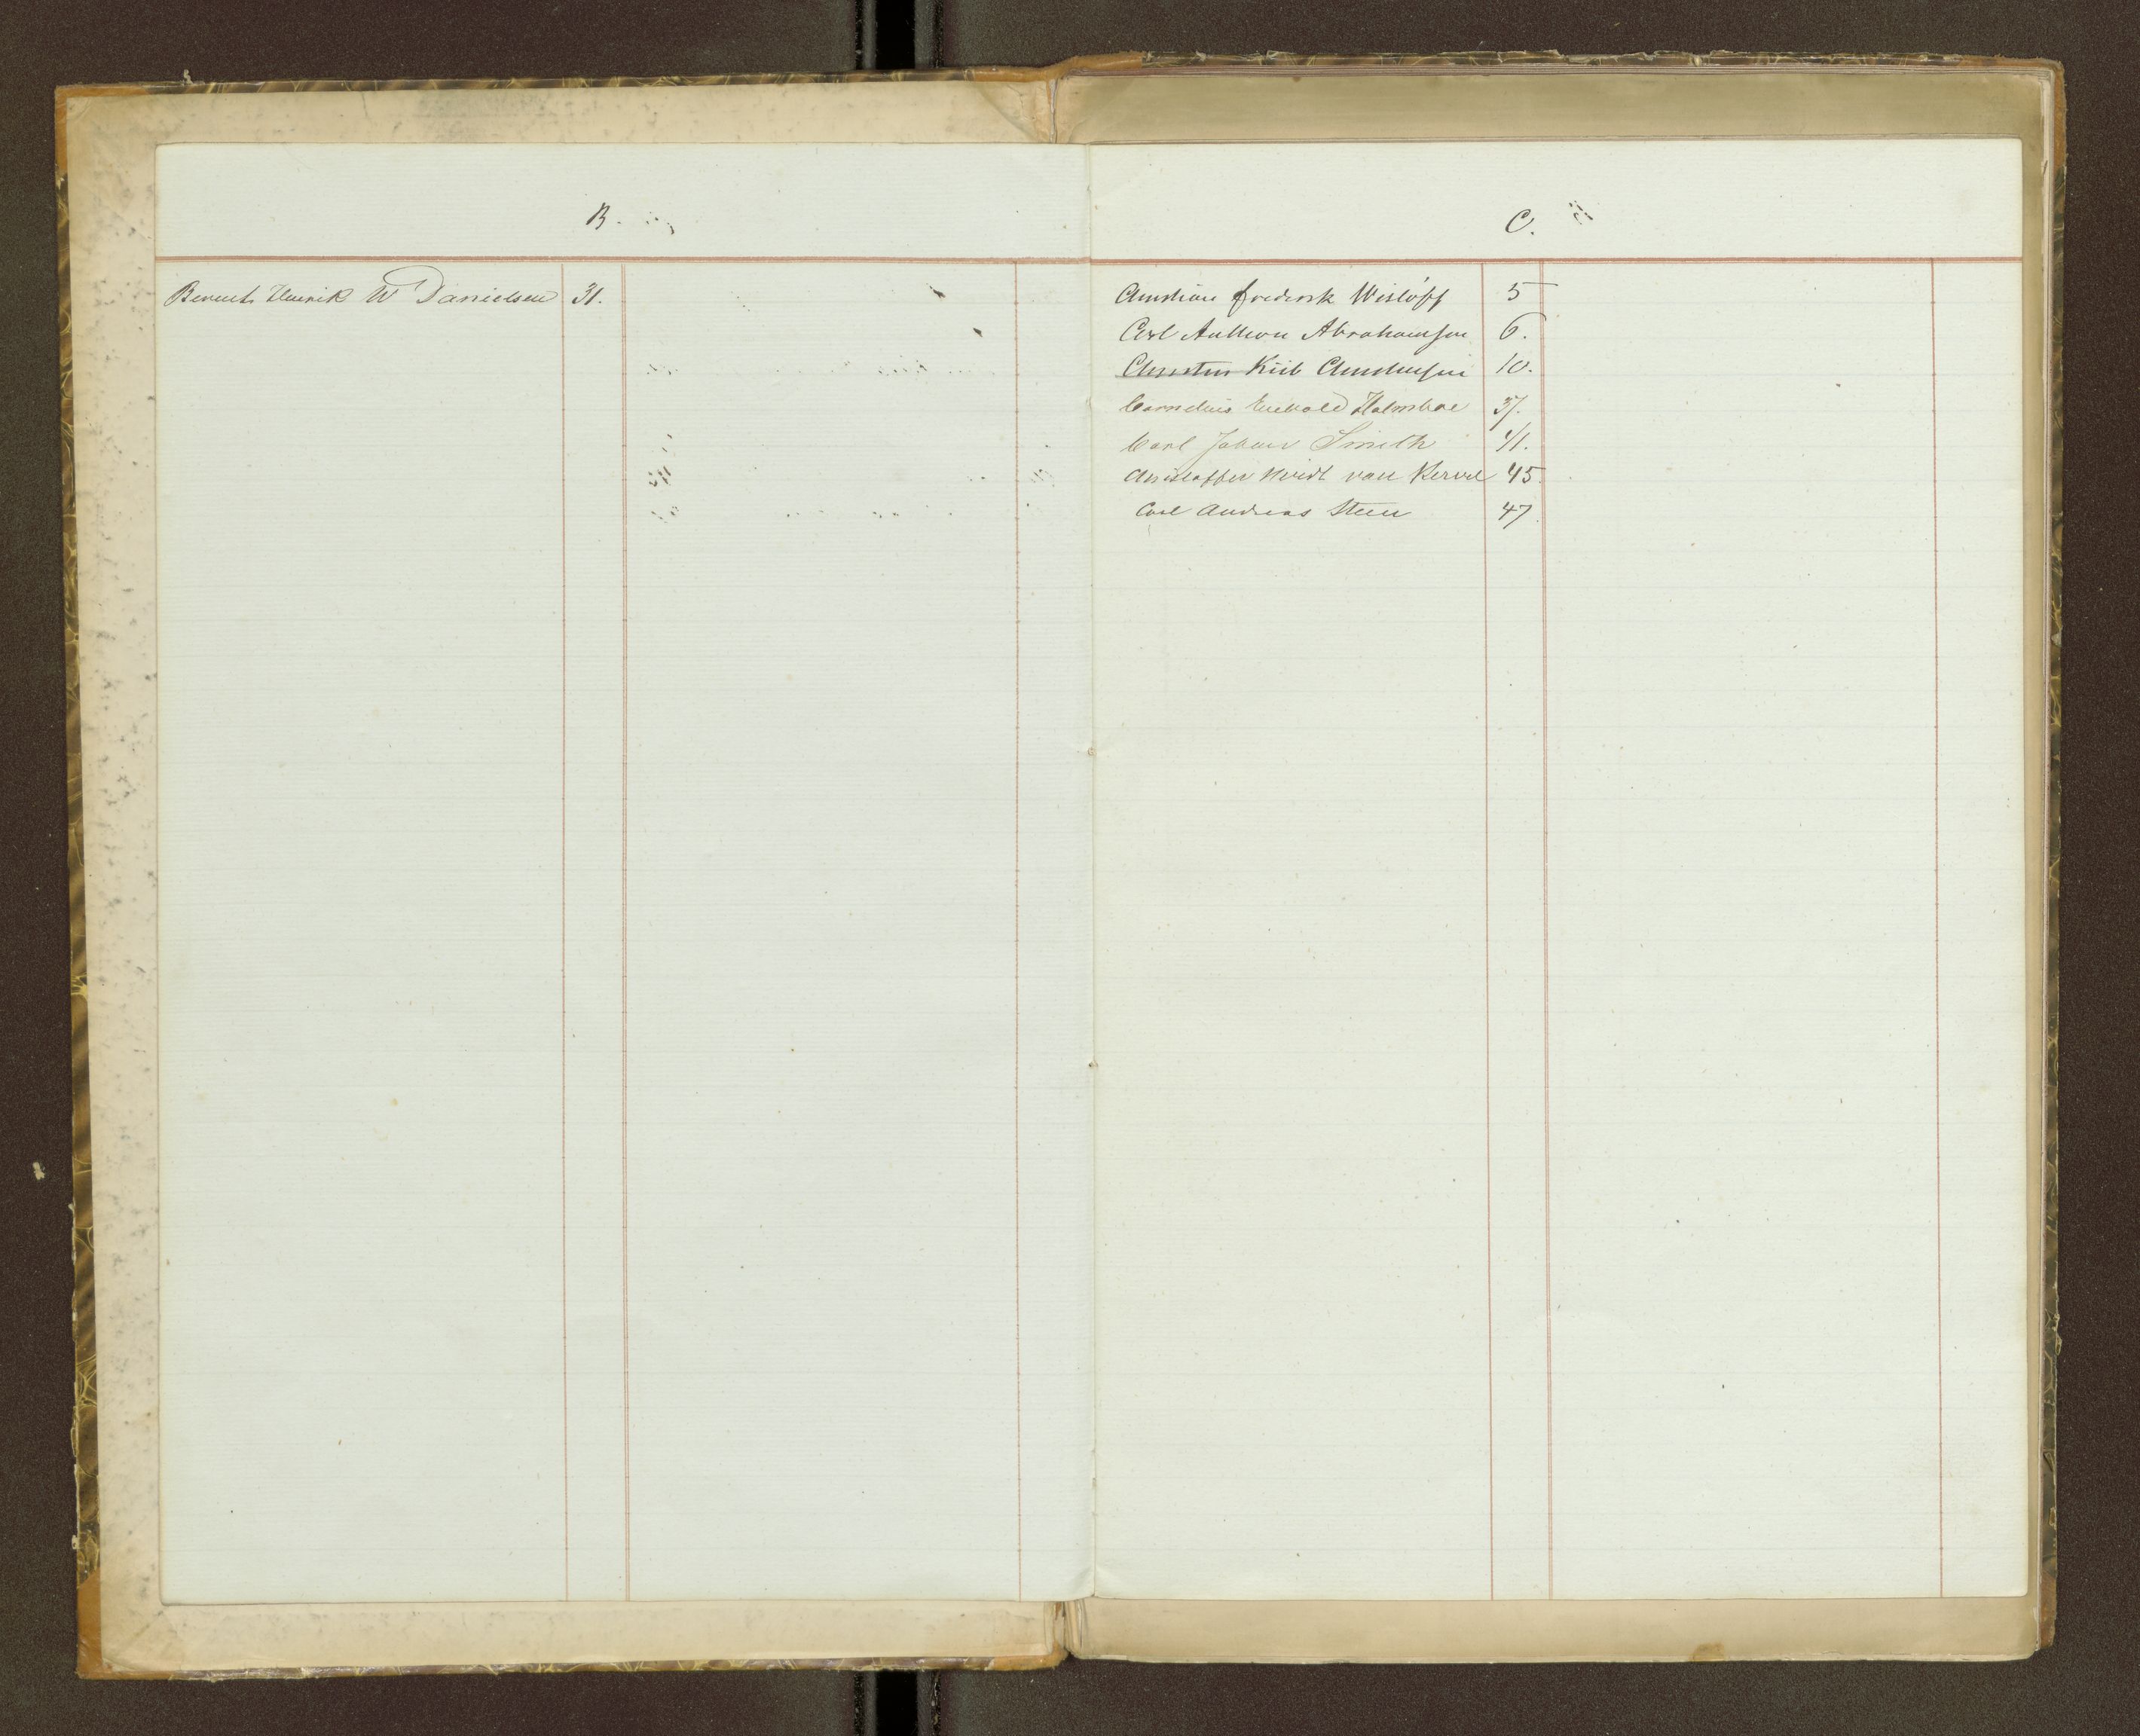 B.
Berent Henrik W Danielsen 31.
C.
Christian Frederik Wisløff 5
Carl Anthon Abrahamsen 6.
Christen Kiil Christensen 10.
Cornelius Holmboe 37.
Carl Johan Smith 41.
Christoffer Hvidt von Kervel 45.
Carl Andreas Steen 47.